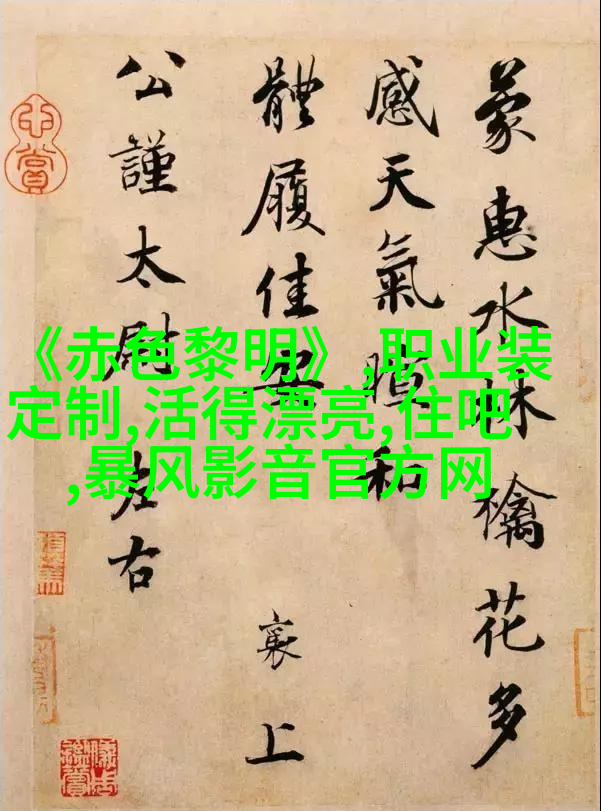 蒙惠水林檎花多
感天氣暄和
體履佳安
襄上
公謹太尉左右
《赤色黎明》,职业装
定制,活得漂亮,住吧
,暴风影音官方网